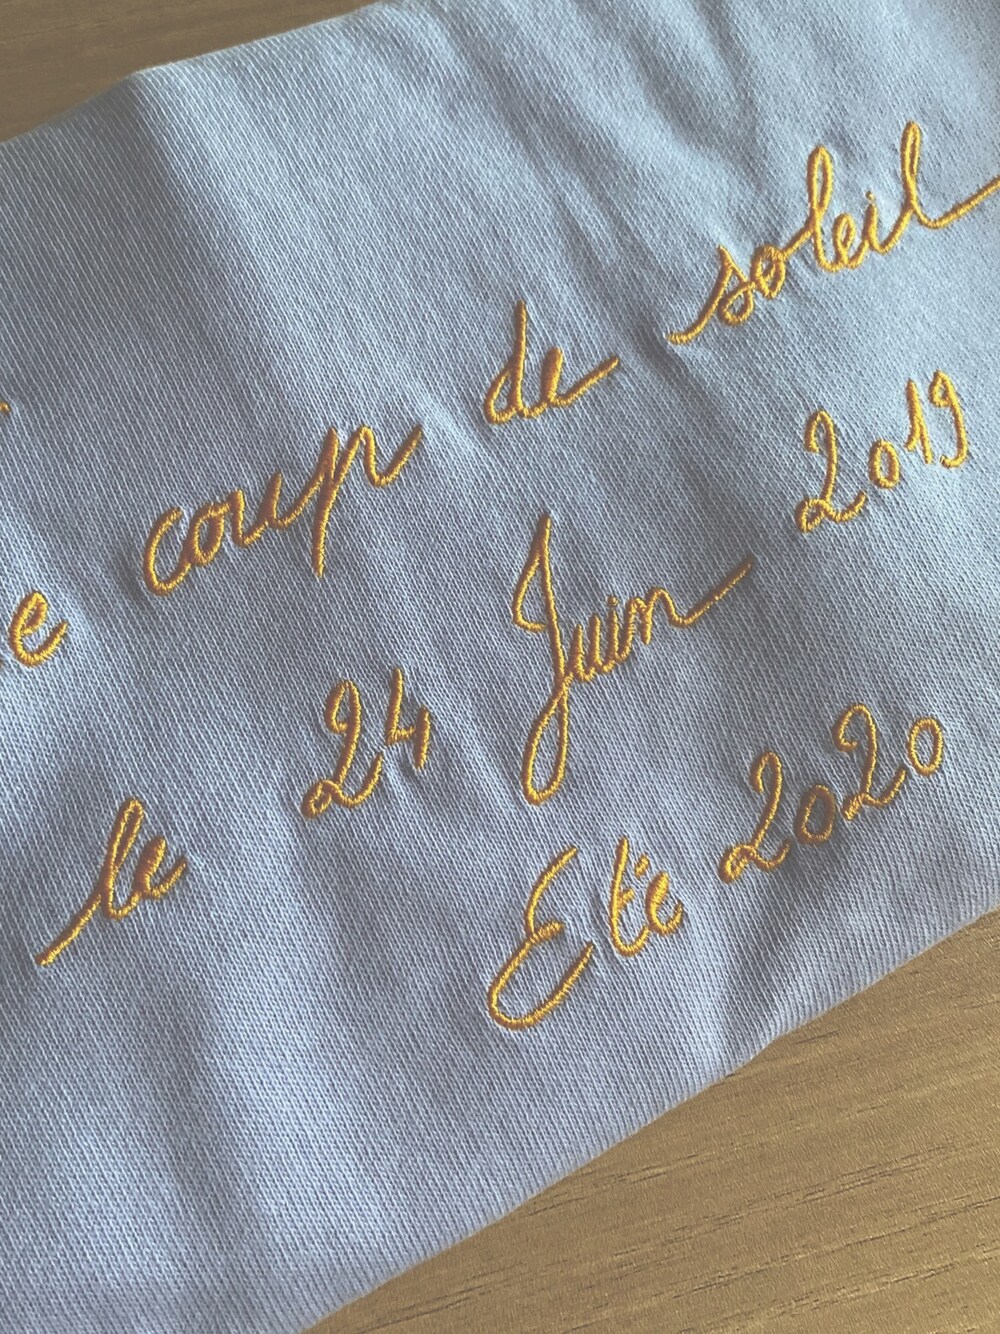 e coup de soleil
le 24 Juin 2019
Eté 2020